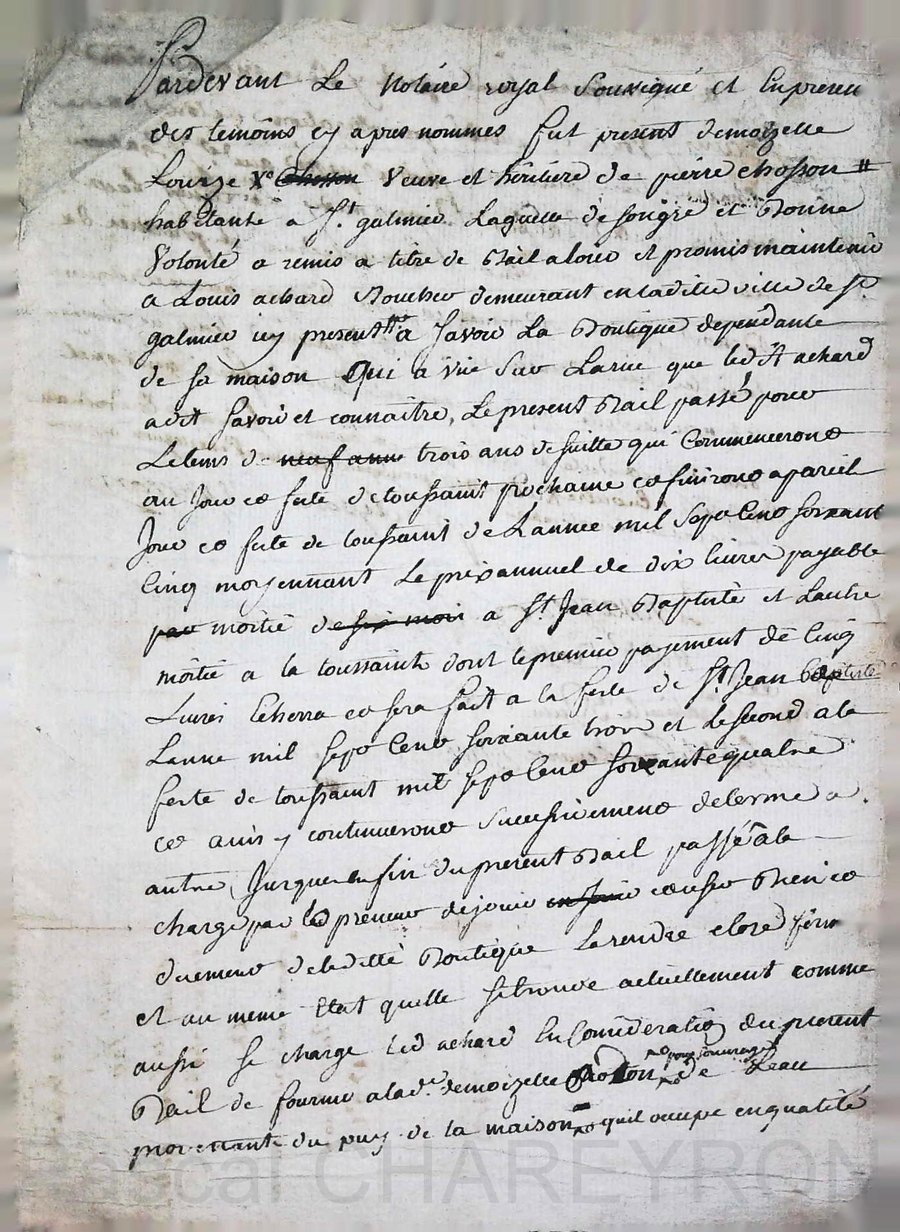 Pardevant Le Notaire royal Soussigné et En presen
des temoins cy apres nommés fut present demoizelle
Louize Ve Chosson Veuve et heritiere de pierre chosson
habitante a St galmier Laquelle de son gré et Bonne
Volonté a remis a titre de Bail a louer et promis maintenir
a Louis achard Boucher demeurant en ladite ville de St
galmier icy present a Savoir La Boutique dependante
de sa maison Qui a vüe Sur La rue que led achard
a dit Savoir et connaitre, Le present Bail passé pour
Le tems de neuf annee trois ans de suitte qui Commenceront
au Jour et feste de toussaint prochaine et finiront a pareil
Jour et feste de toussaint de L'année mil Sept Cent soixant
Cinq moyennant Le prix annuel de dix livres payable
par moitié de six mois a St Jean Baptiste et L'autre
moitié a la toussaint dont le premier payement de Cinq
Livres Echerra et sera fait a la feste de St Jean baptiste
L'anne mil sept Cent soixante trois et Le second a la
feste de toussaint mil sept Cent soixante quatre
et ainsi y continueront successivement de terme a
autre, Jusques en fin du present Bail passé a la
charge par led preneur de jouir en Bien et
duement de ladite Boutique La rendre close
et au meme Etat quelle se trouve actuellement comme
aussi se charge led achard En Consideration du present
pour son usage
Bail de fournir a lade demoizelle Chosson de L'eau
provenante du puy de la maison quil occupe en qualité
Pascal CHAREYRON